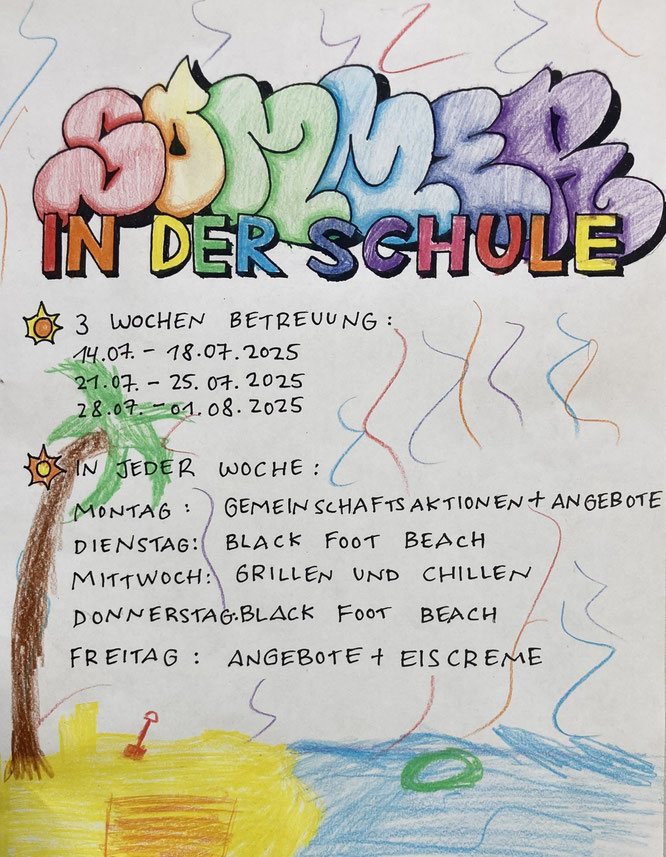 SOMMER
IN DER SCHULE
3 WOCHEN BETREUUNG:
14.07. - 18.07.2025
21.07. - 25.07.2025
28.07. - 01.08.2025
IN JEDER WOCHE:
MONTAG: GEMEINSCHAFTSAKTIONEN + ANGEBOTE
DIENSTAG: BLACK FOOT BEACH
MITTWOCH: GRILLEN UND CHILLEN
DONNERSTAG: BLACK FOOT BEACH
FREITAG: ANGEBOTE + EISCREME